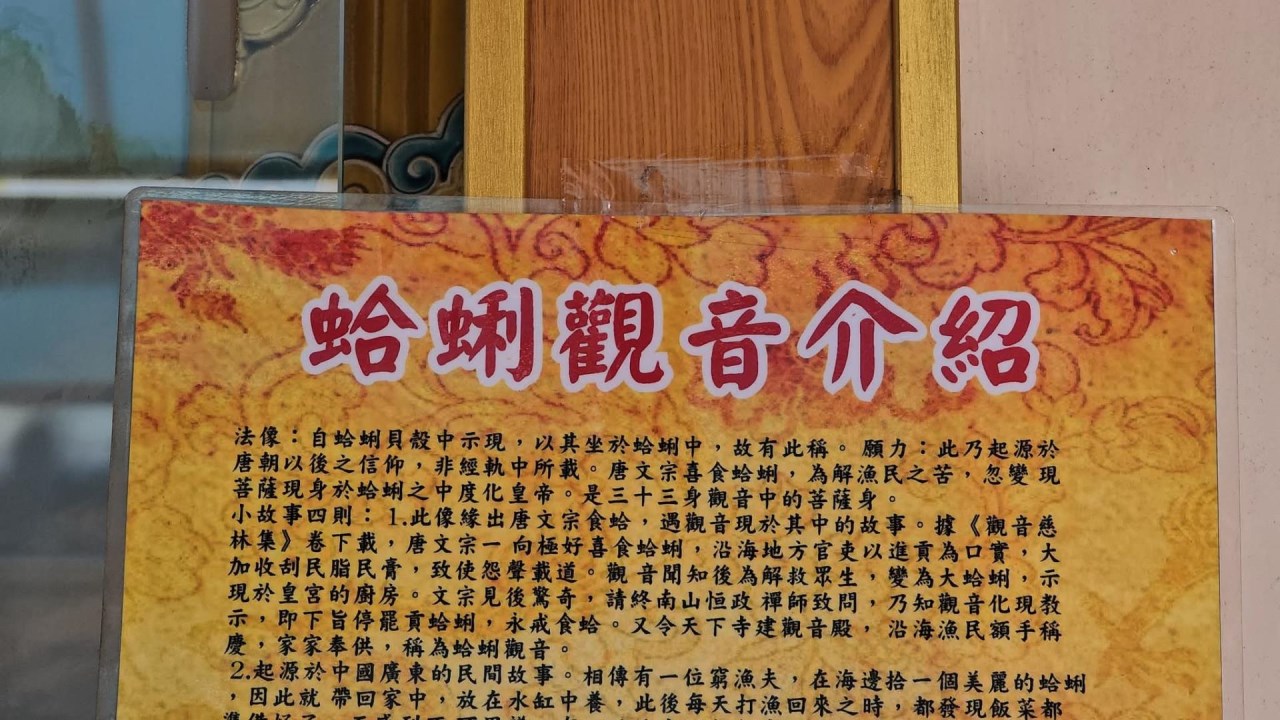 蛤蜊觀音介紹
法像：自蛤蜊貝殼中示現，以其坐於蛤蜊中，故有此稱。願力：此乃起源於
唐朝以後之信仰，非經軌中所載。唐文宗喜食蛤蜊，為解漁民之苦，忽變現
菩薩現身於蛤蜊之中度化皇帝。是三十三身觀音中的菩薩身。
小故事四則：1.此像緣出唐文宗食蛤，遇觀音現於其中的故事。據《觀音慈
林集》卷下載，唐文宗一向極好喜食蛤蜊，沿海地方官吏以進貢為口實，大
加收刮民脂民膏，致使怨聲載道。觀音聞知後為解救眾生，變為大蛤蜊，示
現於皇宮的廚房。文宗見後驚奇，請終南山恒政禪師致問，乃知觀音化現教
示，即下旨停罷貢蛤蜊，永戒食蛤。又令天下寺建觀音殿，沿海漁民額手稱
慶，家家奉供，稱為蛤蜊觀音。
2.起源於中國廣東的民間故事。相傳有一位窮漁夫，在海邊拾一個美麗的蛤蜊
，因此就帶回家中，放在水缸中養，此後每天打漁回來之時，都發現飯菜都